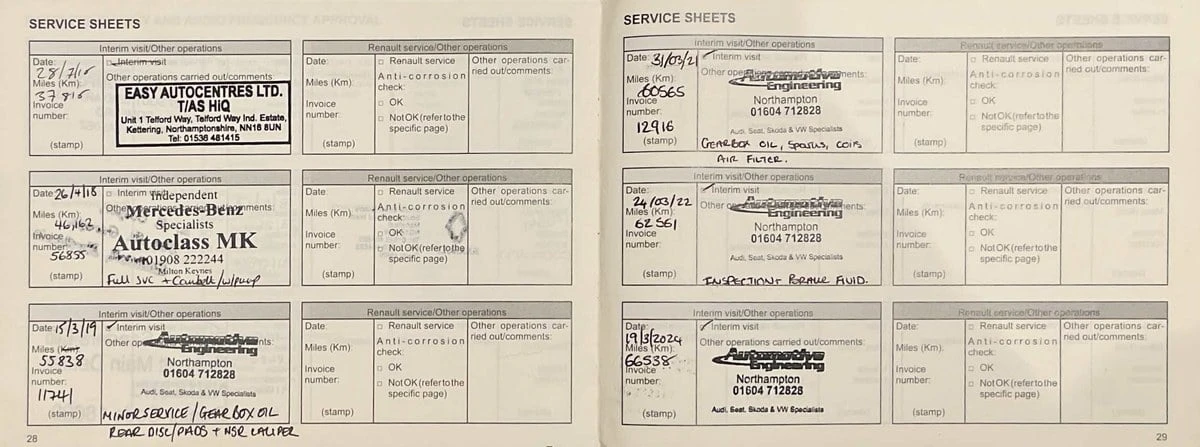 SERVICE SHEETS
Interim visit/Other operations
Date: 28/7/15
Interim visit
Miles (Km): 37815
Other operations carried out/comments:
Invoice number:
EASY AUTOCENTRES LTD.
T/AS HiQ
Unit 1 Telford Way, Telford Way Ind. Estate,
Kettering, Northamptonshire, NN16 8UN
Tel: 01536 481415
(stamp)
Renault service/Other operations
Date:
Renault service
Other operations car-
ried out/comments:
Miles (Km):
Anti-corrosion
check:
Invoice
number:
OK
Not OK (refer to the
specific page)
(stamp)
Interim visit/Other operations
Date: 26/4/18
Interim visit
Miles (Km): 46,163
Invoice
number: 56855
Independent
Mercedes-Benz
Specialists
Autoclass MK
01908 222244
Milton Keynes
(stamp)
Full SVC + Cambelt/w/pump
Renault service/Other operations
Date:
Renault service
Other operations car-
ried out/comments:
Miles (Km):
Anti-corrosion
check:
Invoice
number:
OK
Not OK (refer to the
specific page)
(stamp)
Interim visit/Other operations
Date: 15/3/19
Interim visit
Miles (Km)
55838
Invoice
number:
11741
Automotive
Engineering
Northampton
01604 712828
Audi, Seat, Skoda & VW Specialists
(stamp)
MINOR SERVICE / GEARBOX OIL
REAR DISC/PADS + NSR CALIPER
Renault service/Other operations
Date:
Renault service
Other operations car-
ried out/comments:
Miles (Km):
Anti-corrosion
check:
Invoice
number:
OK
Not OK (refer to the
specific page)
(stamp)
28
SERVICE SHEETS
Interim visit/Other operations
Date: 31/03/21
Interim visit
Miles (Km):
60565
Invoice
number:
12916
Automotive
Engineering
Northampton
01604 712828
Audi, Seat, Skoda & VW Specialists
(stamp)
GEARBOX OIL, SPARKS, COILS
AIR FILTER.
Renault service/Other operations
Date:
Renault service
Other operations car-
ried out/comments:
Miles (Km):
Anti-corrosion
check:
Invoice
number:
OK
Not OK (refer to the
specific page)
(stamp)
Interim visit/Other operations
Date:
24/03/22
Interim visit
Miles (Km):
62561
Invoice
number:
Automotive
Engineering
Northampton
01604 712828
Audi, Seat, Skoda & VW Specialists
(stamp)
INSPECTION + BRAKE FLUID.
Renault service/Other operations
Date:
Renault service
Other operations car-
ried out/comments:
Miles (Km):
Anti-corrosion
check:
Invoice
number:
OK
Not OK (refer to the
specific page)
(stamp)
Interim visit/Other operations
Date:
19/3/2024
Interim visit
Miles (Km):
66538
Other operations carried out/comments:
Invoice
number:
Automotive
Engineering
Northampton
01604 712828
Audi, Seat, Skoda & VW Specialists
(stamp)
Renault service/Other operations
Date:
Renault service
Other operations car-
ried out/comments:
Miles (Km):
Anti-corrosion
check:
Invoice
number:
OK
Not OK (refer to the
specific page)
(stamp)
29